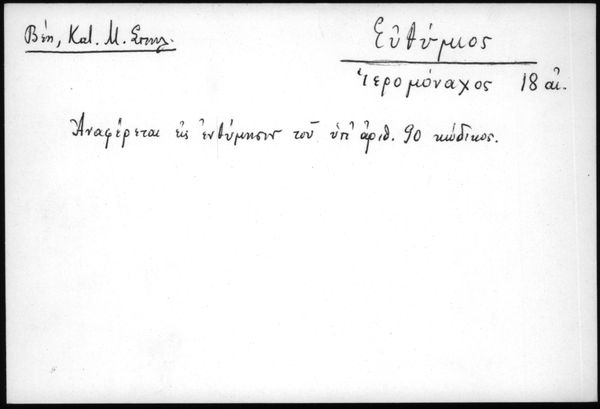 Βέη, Κατ. Μ. Σπηλ.
Εὐθύμιος
Ἱερομόναχος 18 αἰ.
Ἀναφέρεται εἰς ἐνθύμησιν τοῦ ὑπ' ἀριθ. 90 κώδικος.